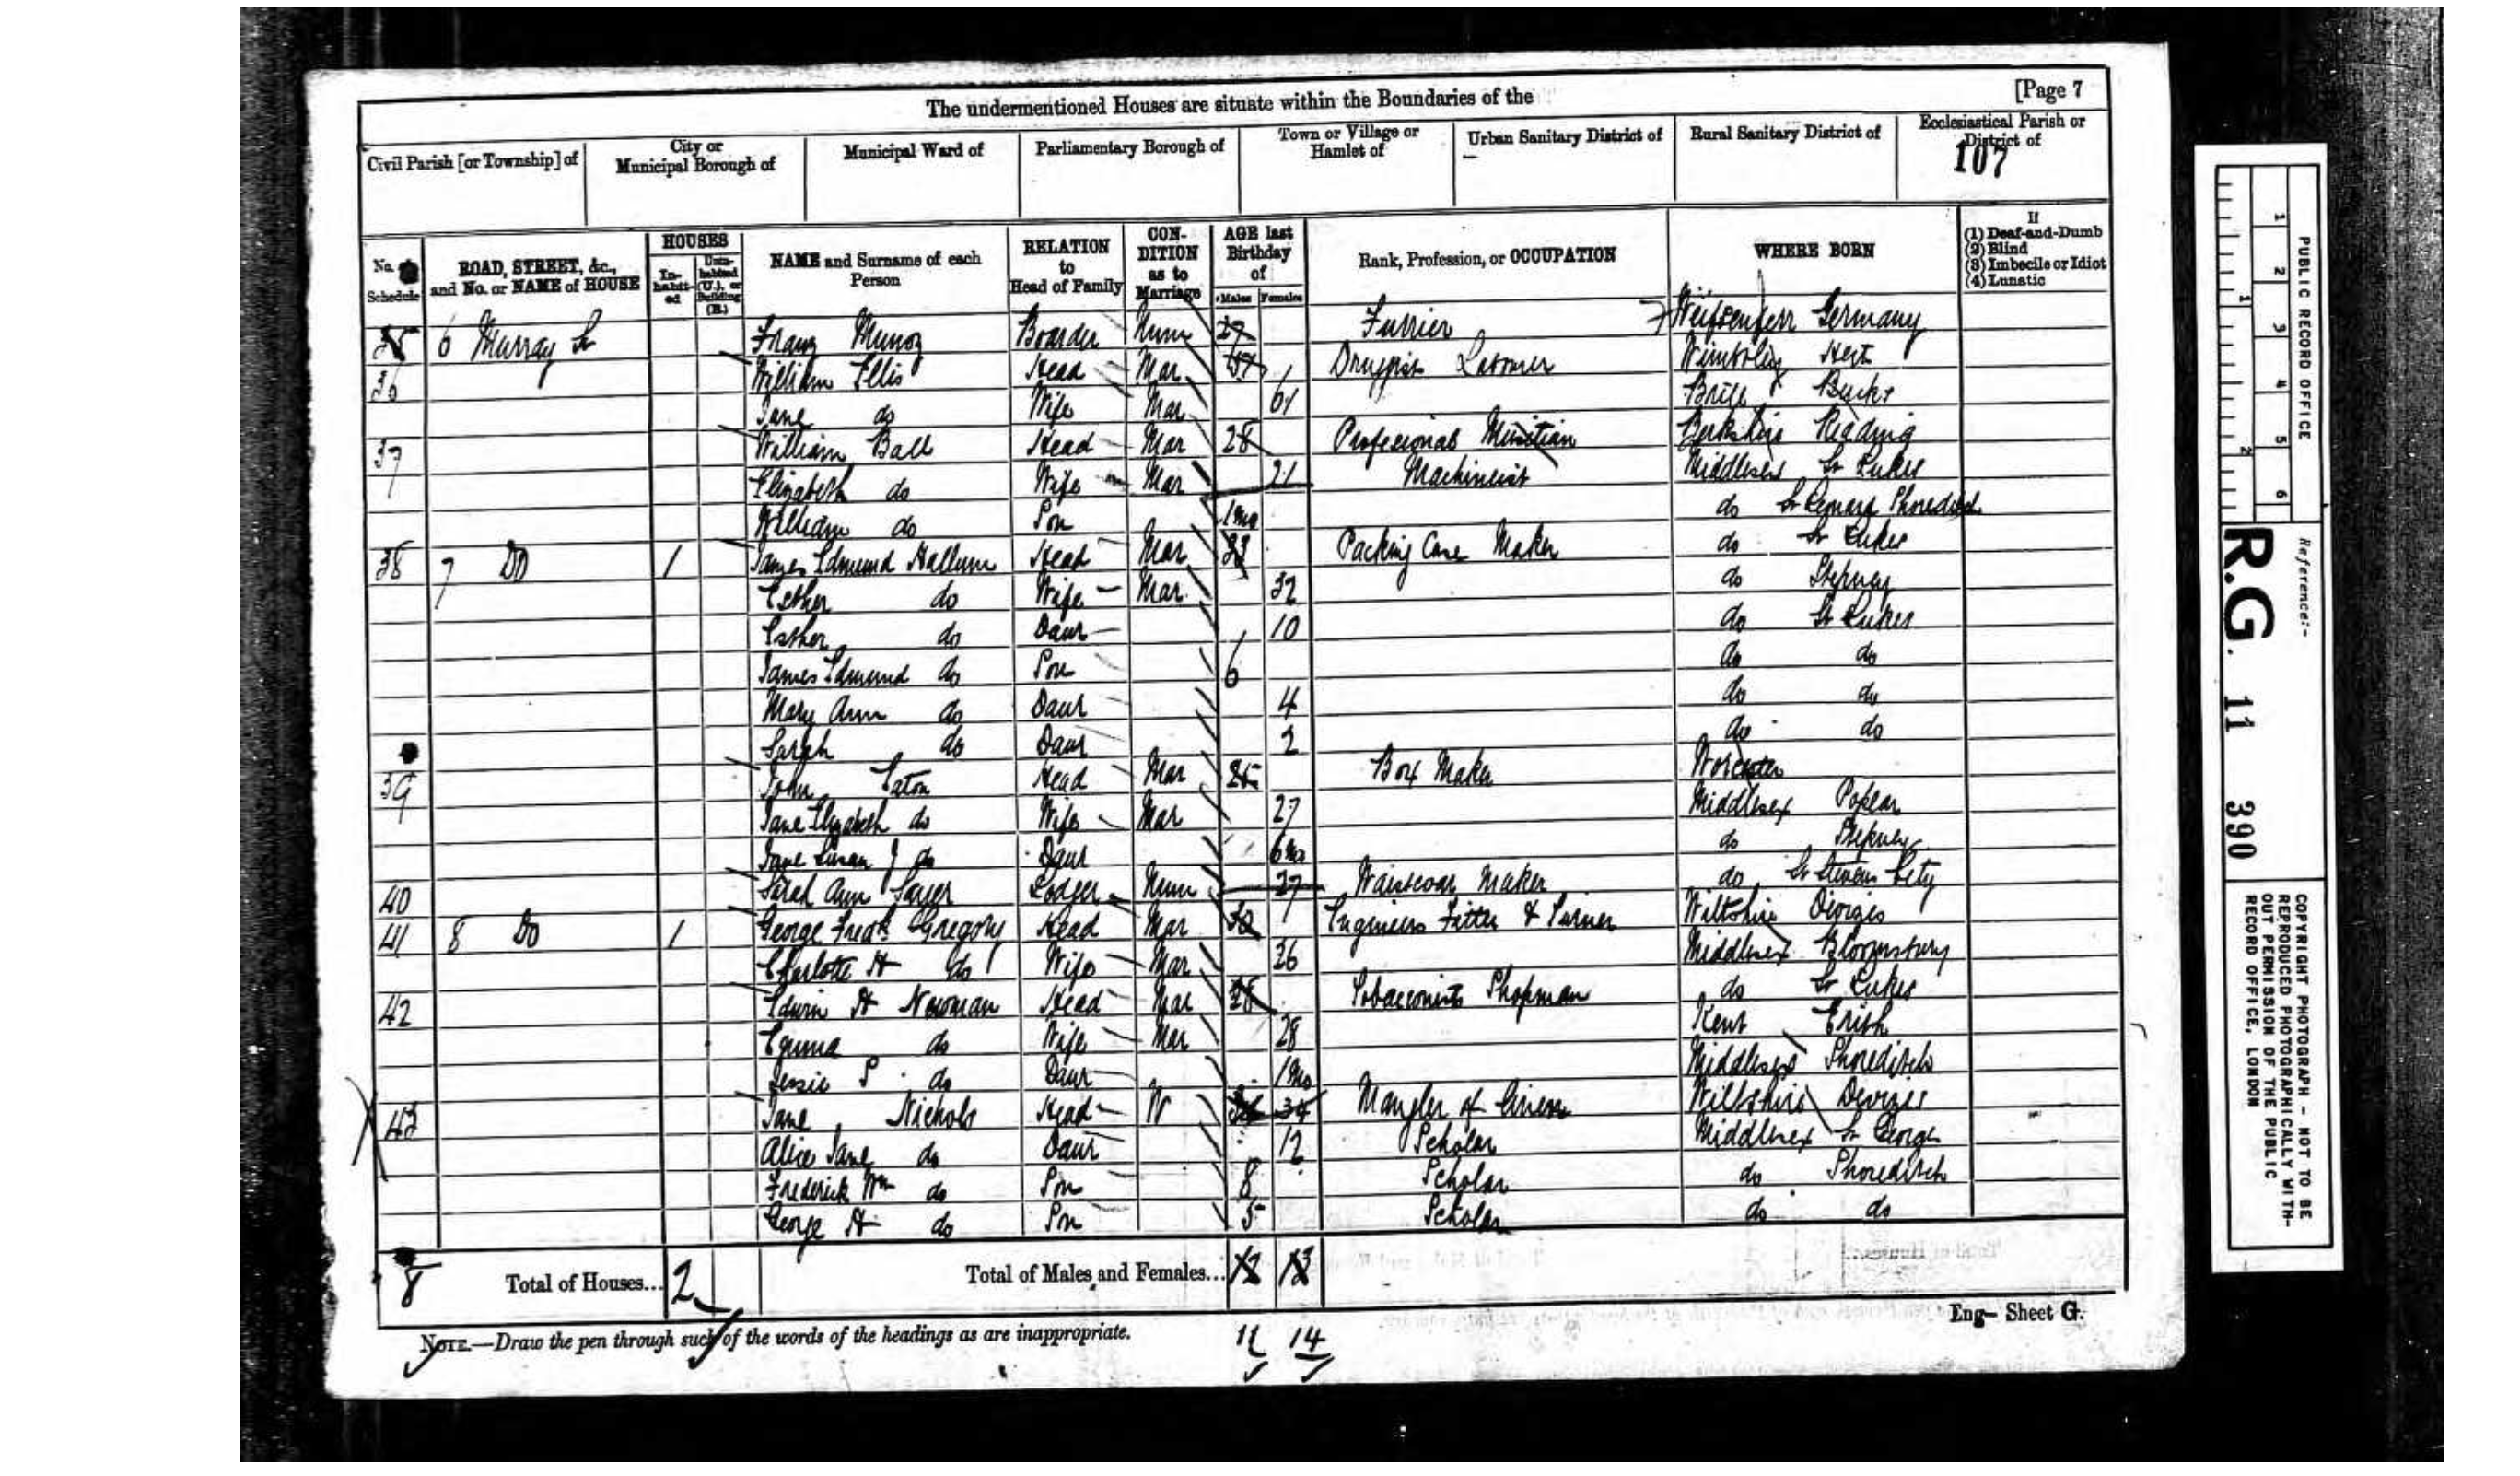 The undermentioned Houses are situate within the Boundaries of the
[Page 7
Civil Parish [or Township] of
City or Municipal Borough of
Municipal Ward of
Parliamentary Borough of
Town or Village or Hamlet of
Urban Sanitary District of
Rural Sanitary District of
Ecclesiastical Parish or District of
107
No. Schedule
ROAD, STREET, &c., and No. or NAME of HOUSE
HOUSES
In-habit-ed
Unin-habited (U.), or Building (B.)
NAME and Surname of each Person
RELATION to Head of Family
CON-DITION as to Marriage
AGE last Birthday of
Males Females
Rank, Profession, or OCCUPATION
WHERE BORN
If
(1) Deaf-and-Dumb
(2) Blind
(3) Imbecile or Idiot
(4) Lunatic
35 6 Murray St Franz Boarder Unm 27 Furrier Germany
36 William Ellis Head Mar 57 Druggist Labourer Hert
Jane do Wife Mar 61 Brill Bucks
37 William Ball Head Mar 28 Professional Musitian Berkshire Reading
Elizabeth do Wife Mar 21 Machineist Middlesex St Lukes
William do Son 1mo do St Leonard Shoreditch
38 7 Do 1 James Edmund Hallum Head Mar 33 Packing Case Maker do St Lukes
Esther do Wife Mar 32 do Stepney
Esther do Daur 10 do St Lukes
James Edmund do Son 6 do do
Mary Ann do Daur 4 do do
Sarah do Daur 2 do do
39 John Eaton Head Mar 25 Box Maker Worcester
Jane Elizabeth do Wife Mar 27 Middlesex Poplar
Jane Susan J do Daur 6mo do Stepney
40 Sarah Ann Sayer Lodger Unm 27 Waistcoat Maker do St Stevens City
41 8 Do 1 George Fredk Gregory Head Mar 30 Engineers Fitter & Turner Wiltshire Devizes
Charlotte H do Wife Mar 36 Middlesex Bloomsbury
42 Edwin H Newman Head Mar 28 Tobacconists Shopman do St Lukes
Emma do Wife Mar 28 Kent Erith
Jessie S do Daur 1mo Middlesex Shoreditch
43 Jane Nichols Head W 34 Mangler of Linen Wiltshire Devizes
Alice Jane do Daur 12 Scholar Middlesex St George
Frederick Wm do Son 8 Scholar do Shoreditch
George H do Son 5 Scholar do do
8 Total of Houses... 2 Total of Males and Females... 12 13
Eng- Sheet G.
NOTE.—Draw the pen through such of the words of the headings as are inappropriate.
11 14
PUBLIC RECORD OFFICE
1 2 3 4 5 6
1 2
Reference:-
R.G. 11 390
COPYRIGHT PHOTOGRAPH - NOT TO BE
REPRODUCED PHOTOGRAPHICALLY WITH-
OUT PERMISSION OF THE PUBLIC
RECORD OFFICE, LONDON